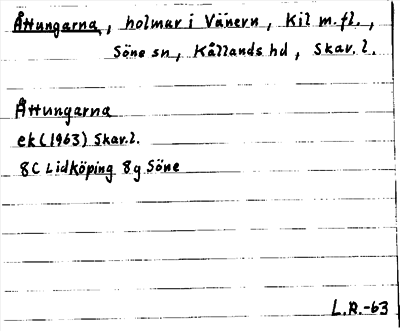 Åttungarna, holmar i Vänern, Kil m.fl.,
Söne sn, Kållands hd, Skar. l.
Åttungarna
ek (1963) Skar. l.
8C Lidköping 8g Söne
L.R.-63